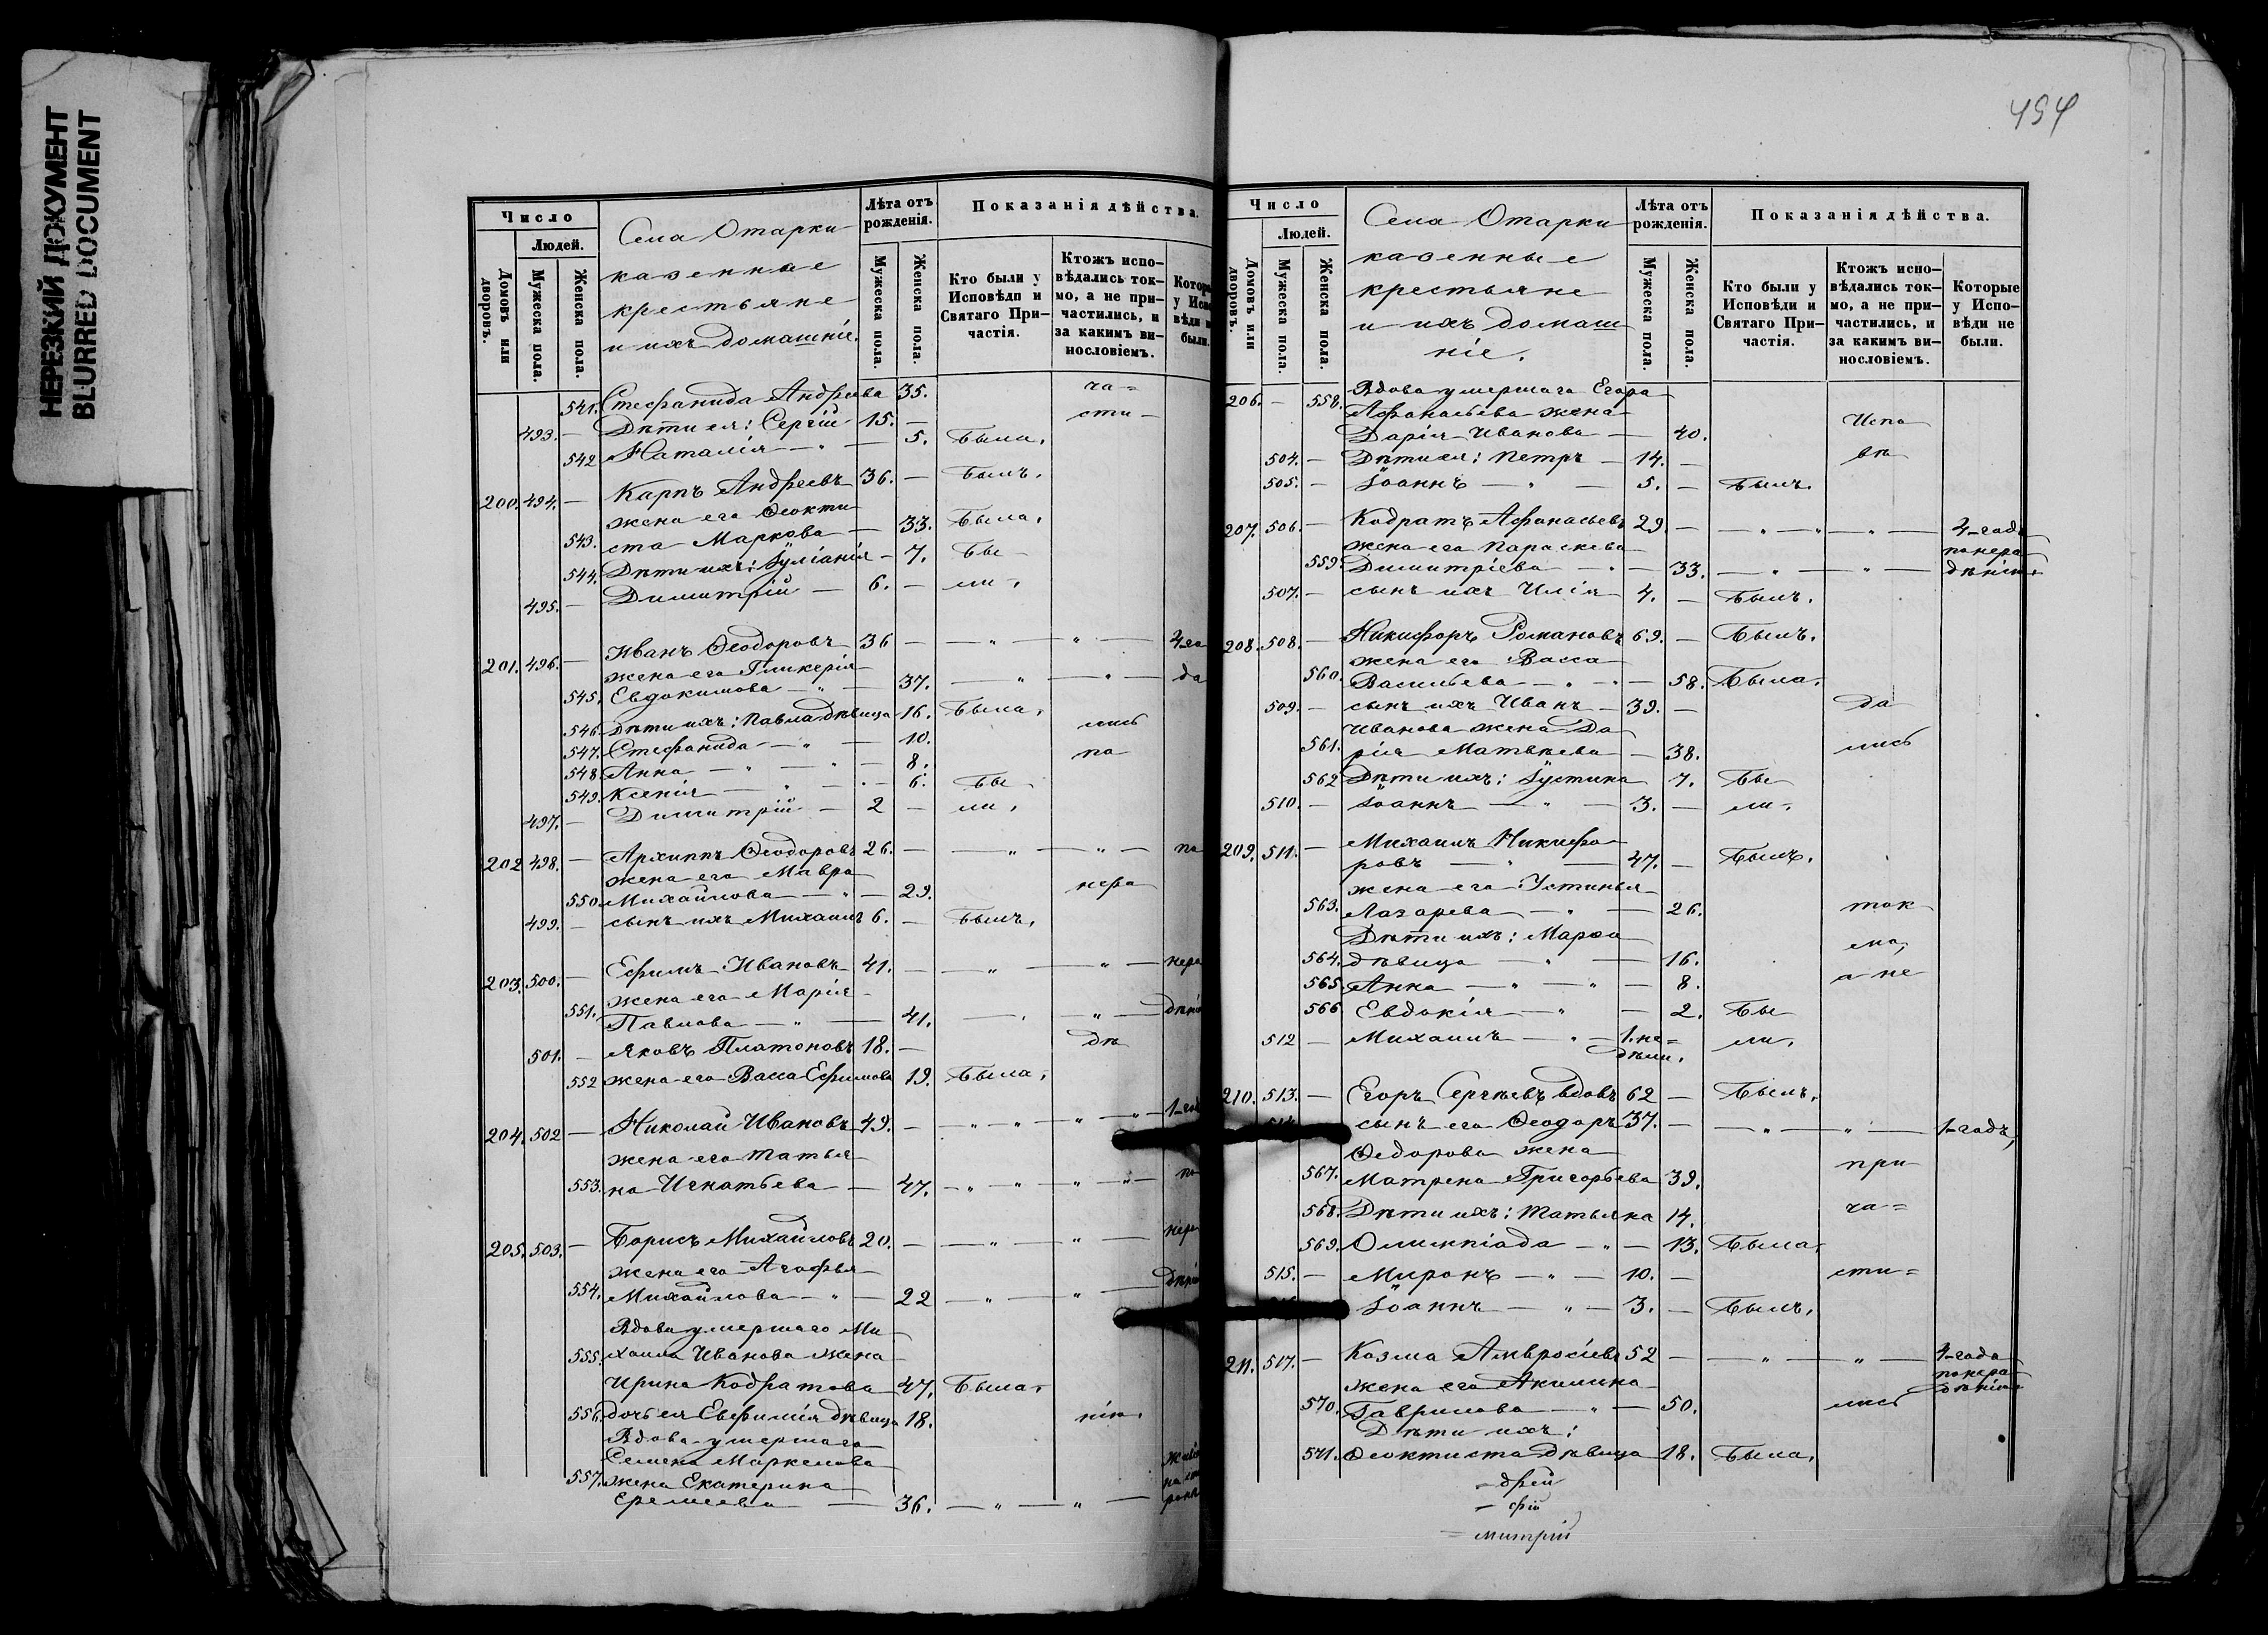 НЕРЕЗКИЙ ДОКУМЕНТ
BLURRED DOCUMENT
Число
Людей.
Домовъ или дворовъ.
Мужеска пола.
Женска пола.
Села Отарки
казенные
крестьяне
и ихъ домашніе.
Лѣта отъ рожденія.
Мужеска пола.
Женска пола.
Показанія дѣйства.
Кто были у Исповѣди и Святаго Причастія.
Ктожъ исповѣдались токмо, а не причастились, и за какимъ винословіемъ.
541. Стефанида Андреева 35. ча=
493. — Дѣти ея: Сергій 15. — сти-
542 Наталія — „ — 5. Была.
200. 494. — Карпъ Андреевъ 36. — Былъ.
жена его Ѳеокти
543. ста Маркова — 33. Была.
544. Дѣти ихъ: Іуліанія - 7. Бы-
495. — Димитрій — 6. — ли.
201. 496. — Иванъ Ѳеодоровъ 36 — — „ — „ — 4 го
жена его Гликерія
545. Евдокимова — „ — 37. — „ — „ — да
546. Дѣти ихъ: Павла дѣвица 16. Была. лись
547. Стефанида — „ — 10. по
548. Анна — „ — „ — 8.
549. Ксенія — „ — 6. Бы
497. — Димитрій — 2 — ли.
202 498. — Архиппъ Ѳеодоровъ 26. — — „ — „ — по
жена его Мавра
550. Михайлова — „ — 29. нера
499. — сынъ ихъ Михаилъ 6. — Былъ.
203. 500. — Ефимъ Ивановъ 41. — — „ — „ — нера
жена его Марія
551. Павлова — „ — 41. — „ — „ — дѣні
501. — Яковъ Платоновъ 18. — дѣ
552 жена его Васса Ефимова 19. Была.
204. 502 — Николай Ивановъ 49. — „ — „ — „ — „ — 1-го
жена его Татья
553. на Игнатьева — 47. — „ — „ — „ — „ — по
205. 503. — Борисъ Михайловъ 20. — — „ — „ — нера
жена его Агафья
554. Михайлова — „ — 22 — „ — „ — дѣні
Вдова умершаго Ми
555. хаила Иванова жена
Ирина Кодратова 47. Была.
556. дочь ея Евфимія дѣвица 18. нію.
Вдова умершаго
Семена Маркелова
557. жена Екатерина
Еремеева — 36. — „ — „ —
494
Число
Людей.
Домовъ или дворовъ.
Мужеска пола.
Женска пола.
Села Отарки
казенные
крестьяне
и ихъ домаш
ніе.
Лѣта отъ рожденія.
Мужеска пола.
Женска пола.
Показанія дѣйства.
Кто были у Исповѣди и Святаго Причастія.
Ктожъ исповѣдались токмо, а не причастились, и за какимъ винословіемъ.
Которые у Исповѣди не были.
206. — 558. Вдова умершаго Егора
Афанасьева жена
Дарія Иванова — 40. Испо
504. — Дѣти ея: Петръ — 14. — вѣ
505. — Іоаннъ — „ — 5. — Былъ.
207. 506. — Кодратъ Афанасьевъ 29 — — „ — „ — „ — 4-года
жена его Параскева понера
559. Димитріева — „ — 33. — „ — „ — дѣнію.
507. — сынъ ихъ Илія 4. — Былъ.
208. 508. — Никифоръ Романовъ 69. — Былъ.
жена его Васса
560. Васильева — „ — 58. Была.
509. — сынъ ихъ Иванъ — 39. — да
Иванова жена Да
561. рія Матвѣева — 38. лись
562 Дѣти ихъ: Іустина 7. Бы
510. — Іоаннъ — „ — 3. — ли.
209. 511. — Михаилъ Никифо
ровъ — „ — 47. — Былъ.
жена его Устинья
563. Лазарева — „ — 26. ток
Дѣти ихъ: Марѳа
564. дѣвица — „ — 16. мо,
565. Анна — „ — „ — 8. а не
566. Евдокія — „ — 2. Бы
512 — Михаилъ — „ — 1. не=
дѣли. ли.
210. 513. — Егоръ Сергѣевъ вдовъ 62 — Былъ.
514. сынъ его Ѳеодоръ 37. — — „ — „ — 1-годъ,
Ѳедорова жена
567. Матрена Григорьева 39. при
568. Дѣти ихъ: Татьяна 14. ча=
569. Олимпіада — „ — 13. Была.
515. — Миронъ — „ — 10. — сти=
Іоаннъ — „ — 3. — Былъ.
211. 517. — Козма Амвросіевъ 52 — — „ — „ — 4-года
жена его Акилина понера
дѣнію
570. Гаврилова — „ — 50. лись
Дѣти ихъ:
571. Ѳеоктиста дѣвица 18. Была.
=дрей
=митрій